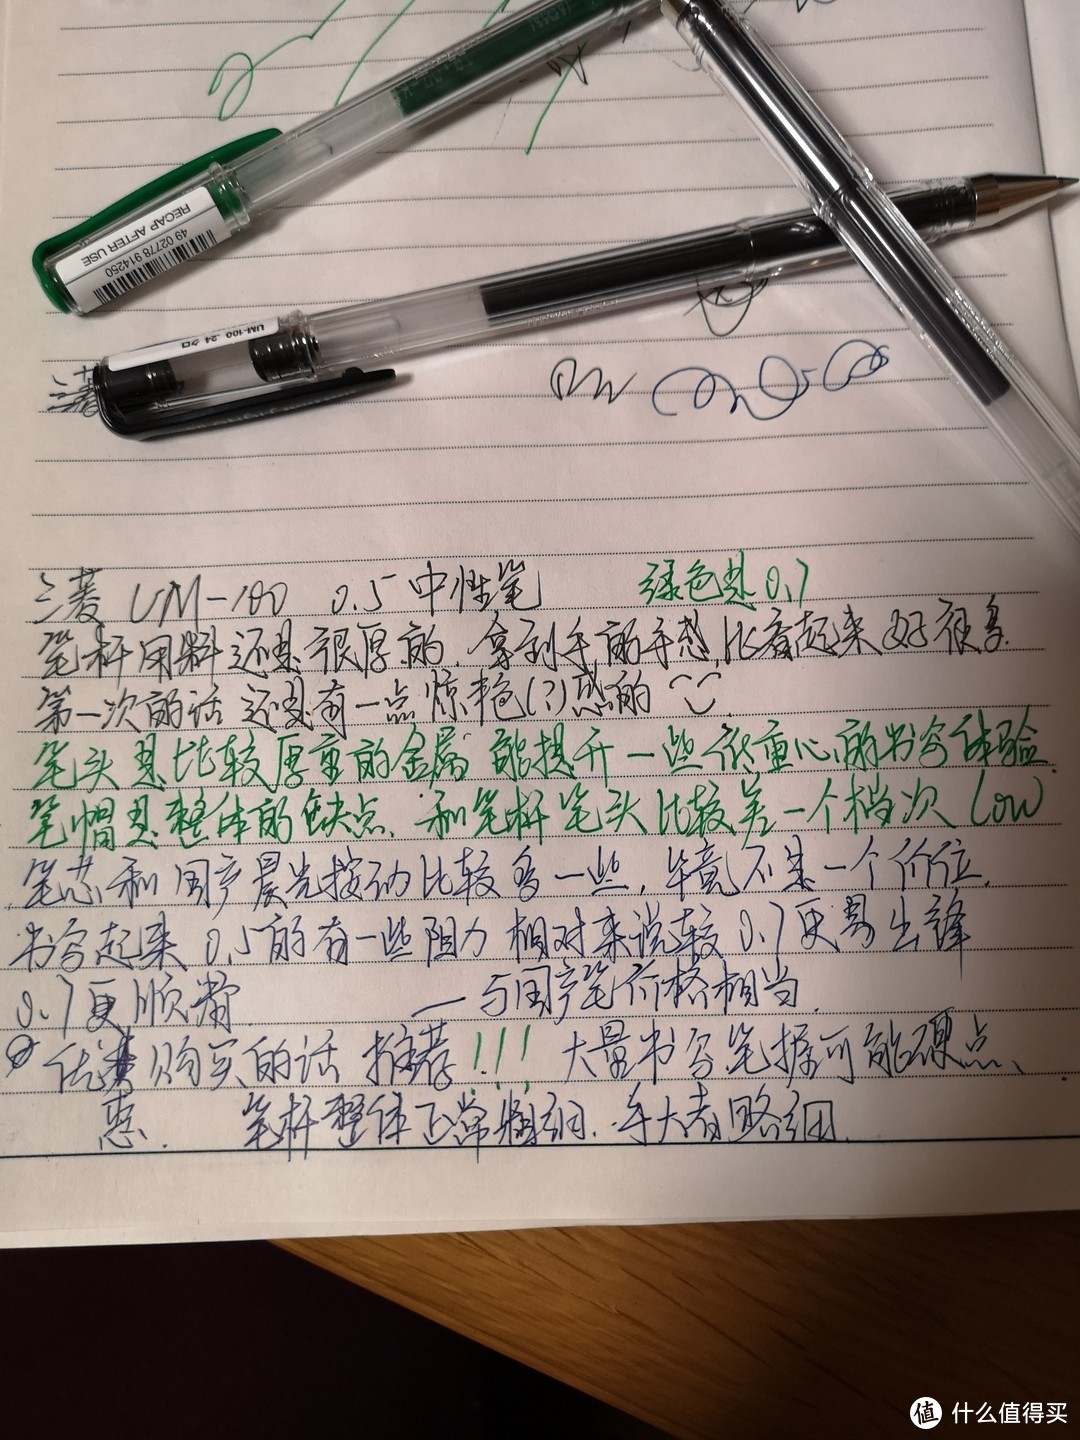 RECAP AFTER USE
49 02778 914250
UM-100 .24
三菱
三菱 UM-100 0.5 中性笔 绿色是0.7
笔杆用料还是很厚的.拿到手的手感,比看起来好很多.
第一次的话 还是有一点惊艳(?)感的
笔头是比较厚重的金属 能提升一些低重心的书写体验.
笔帽是整体的缺点.和笔杆笔头比较差一个档次 low
笔芯和国产晨光按动比较多一些,毕竟不是一个价位.
书写起来 0.5的有一些阻力 相对来说较 0.7更易出锋
0.7更顺滑. —与国产笔价格相当.
优惠购买的话 推荐!!! 大量书写笔握可能硬点、
惠. 笔杆整体正常偏细.手大者略细.
值 什么值得买